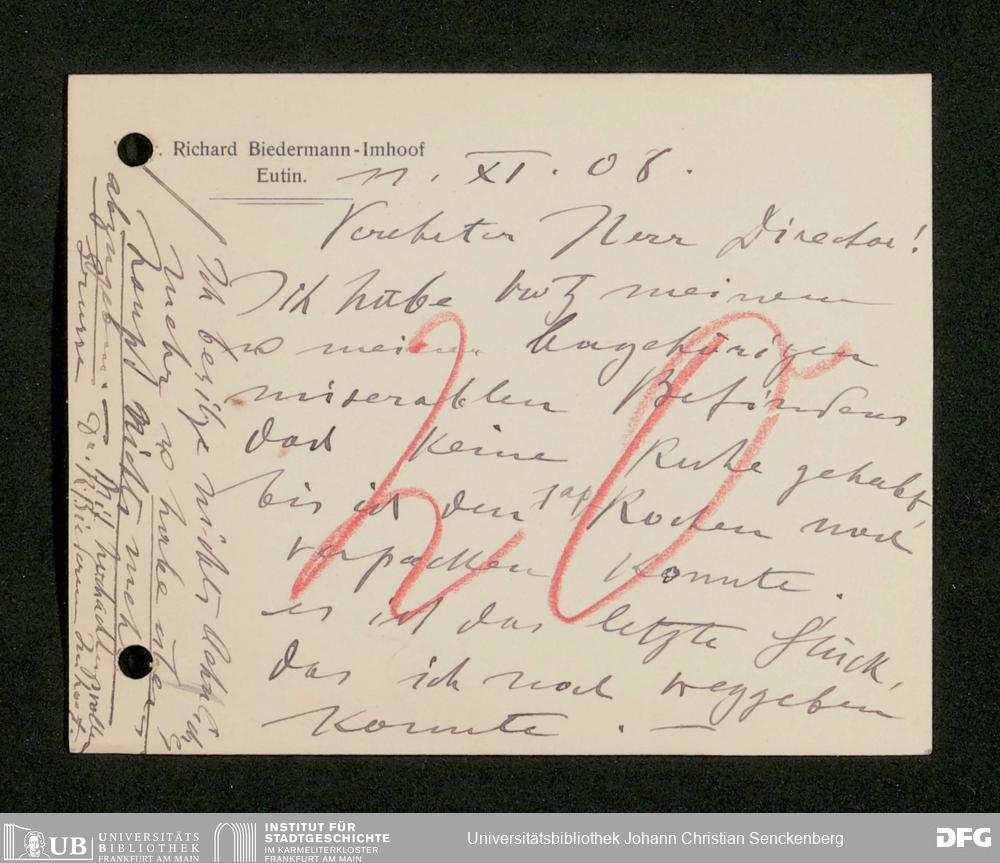 Dr. Richard Biedermann-Imhoof
Eutin.
11. XI. 08.
Verehrter Herr Director!
Ich habe trotz meinem
miserablen Befindens
doch keine Ruhe gehabt,
bis ich den jap Rochen noch
verpacken konnte.
es ist das letzte Stück,
das ich noch weggeben
konnte. —
Ich besitze nichts
mehr u habe über-
haupt nichts mehr
abzugeben. — Mit hochachtungsvollem
Grusse Dr. R. Biedermann Imhoof.
UB UNIVERSITÄTS
BIBLIOTHEK
FRANKFURT AM MAIN
INSTITUT FÜR
STADTGESCHICHTE
IM KARMELITERKLOSTER
FRANKFURT AM MAIN
Universitätsbibliothek Johann Christian Senckenberg
DFG